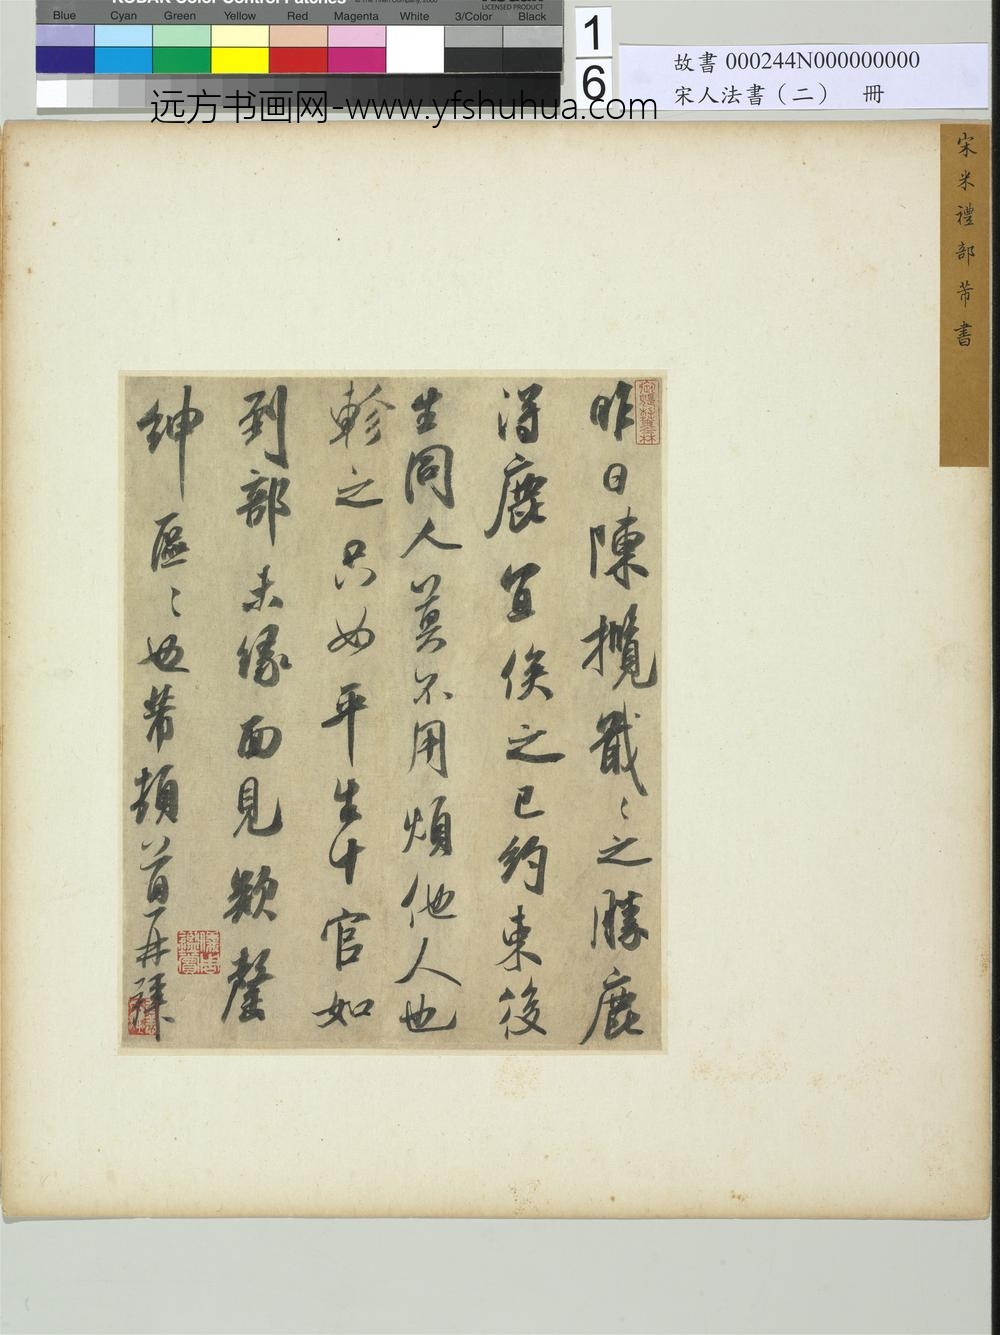 KODAK Color Control Patches
LICENSED PRODUCT
Blue Cyan Green Yellow Red Magenta White 3/Color Black
1
6
故書 000244N000000000
宋人法書（二） 冊
远方书画网-www.yfshuhua.com
宋米禮部芾書
昨日陳攬戢戢之勝鹿
得鹿宜俟之已約束後
生同人莫不用煩他人也
軫之只如平生十官如
到部未緣面見欵罄
紳區區也芾頓首再拜